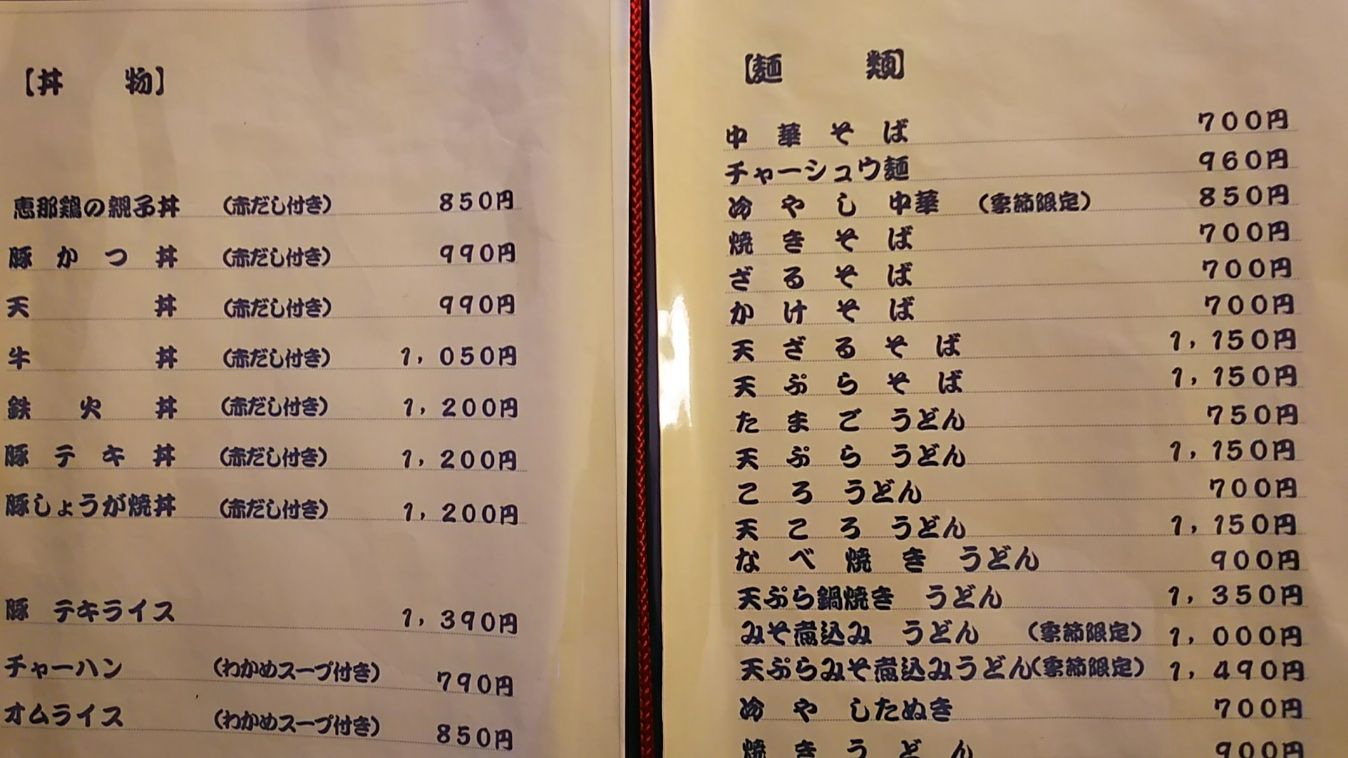 【丼 物】
恵那鶏の親子丼 (赤だし付き) 850円
豚かつ丼 (赤だし付き) 990円
天丼 (赤だし付き) 990円
牛丼 (赤だし付き) 1,050円
鉄火丼 (赤だし付き) 1,200円
豚テキ丼 (赤だし付き) 1,200円
豚しょうが焼丼 (赤だし付き) 1,200円
豚 テキライス 1,390円
チャーハン (わかめスープ付き) 790円
オムライス (わかめスープ付き) 850円
【麺 類】
中華そば 700円
チャーシュウ麺 960円
冷やし中華 (季節限定) 850円
焼きそば 700円
ざるそば 700円
かけそば 700円
天ざるそば 1,150円
天ぷらそば 1,150円
たまごうどん 750円
天ぷらうどん 1,150円
ころうどん 700円
天ころうどん 1,150円
なべ焼きうどん 900円
天ぷら鍋焼き うどん 1,350円
みそ煮込み うどん (季節限定) 1,000円
天ぷらみそ煮込みうどん(季節限定) 1,490円
冷やしたぬき 700円
焼きうどん 900円